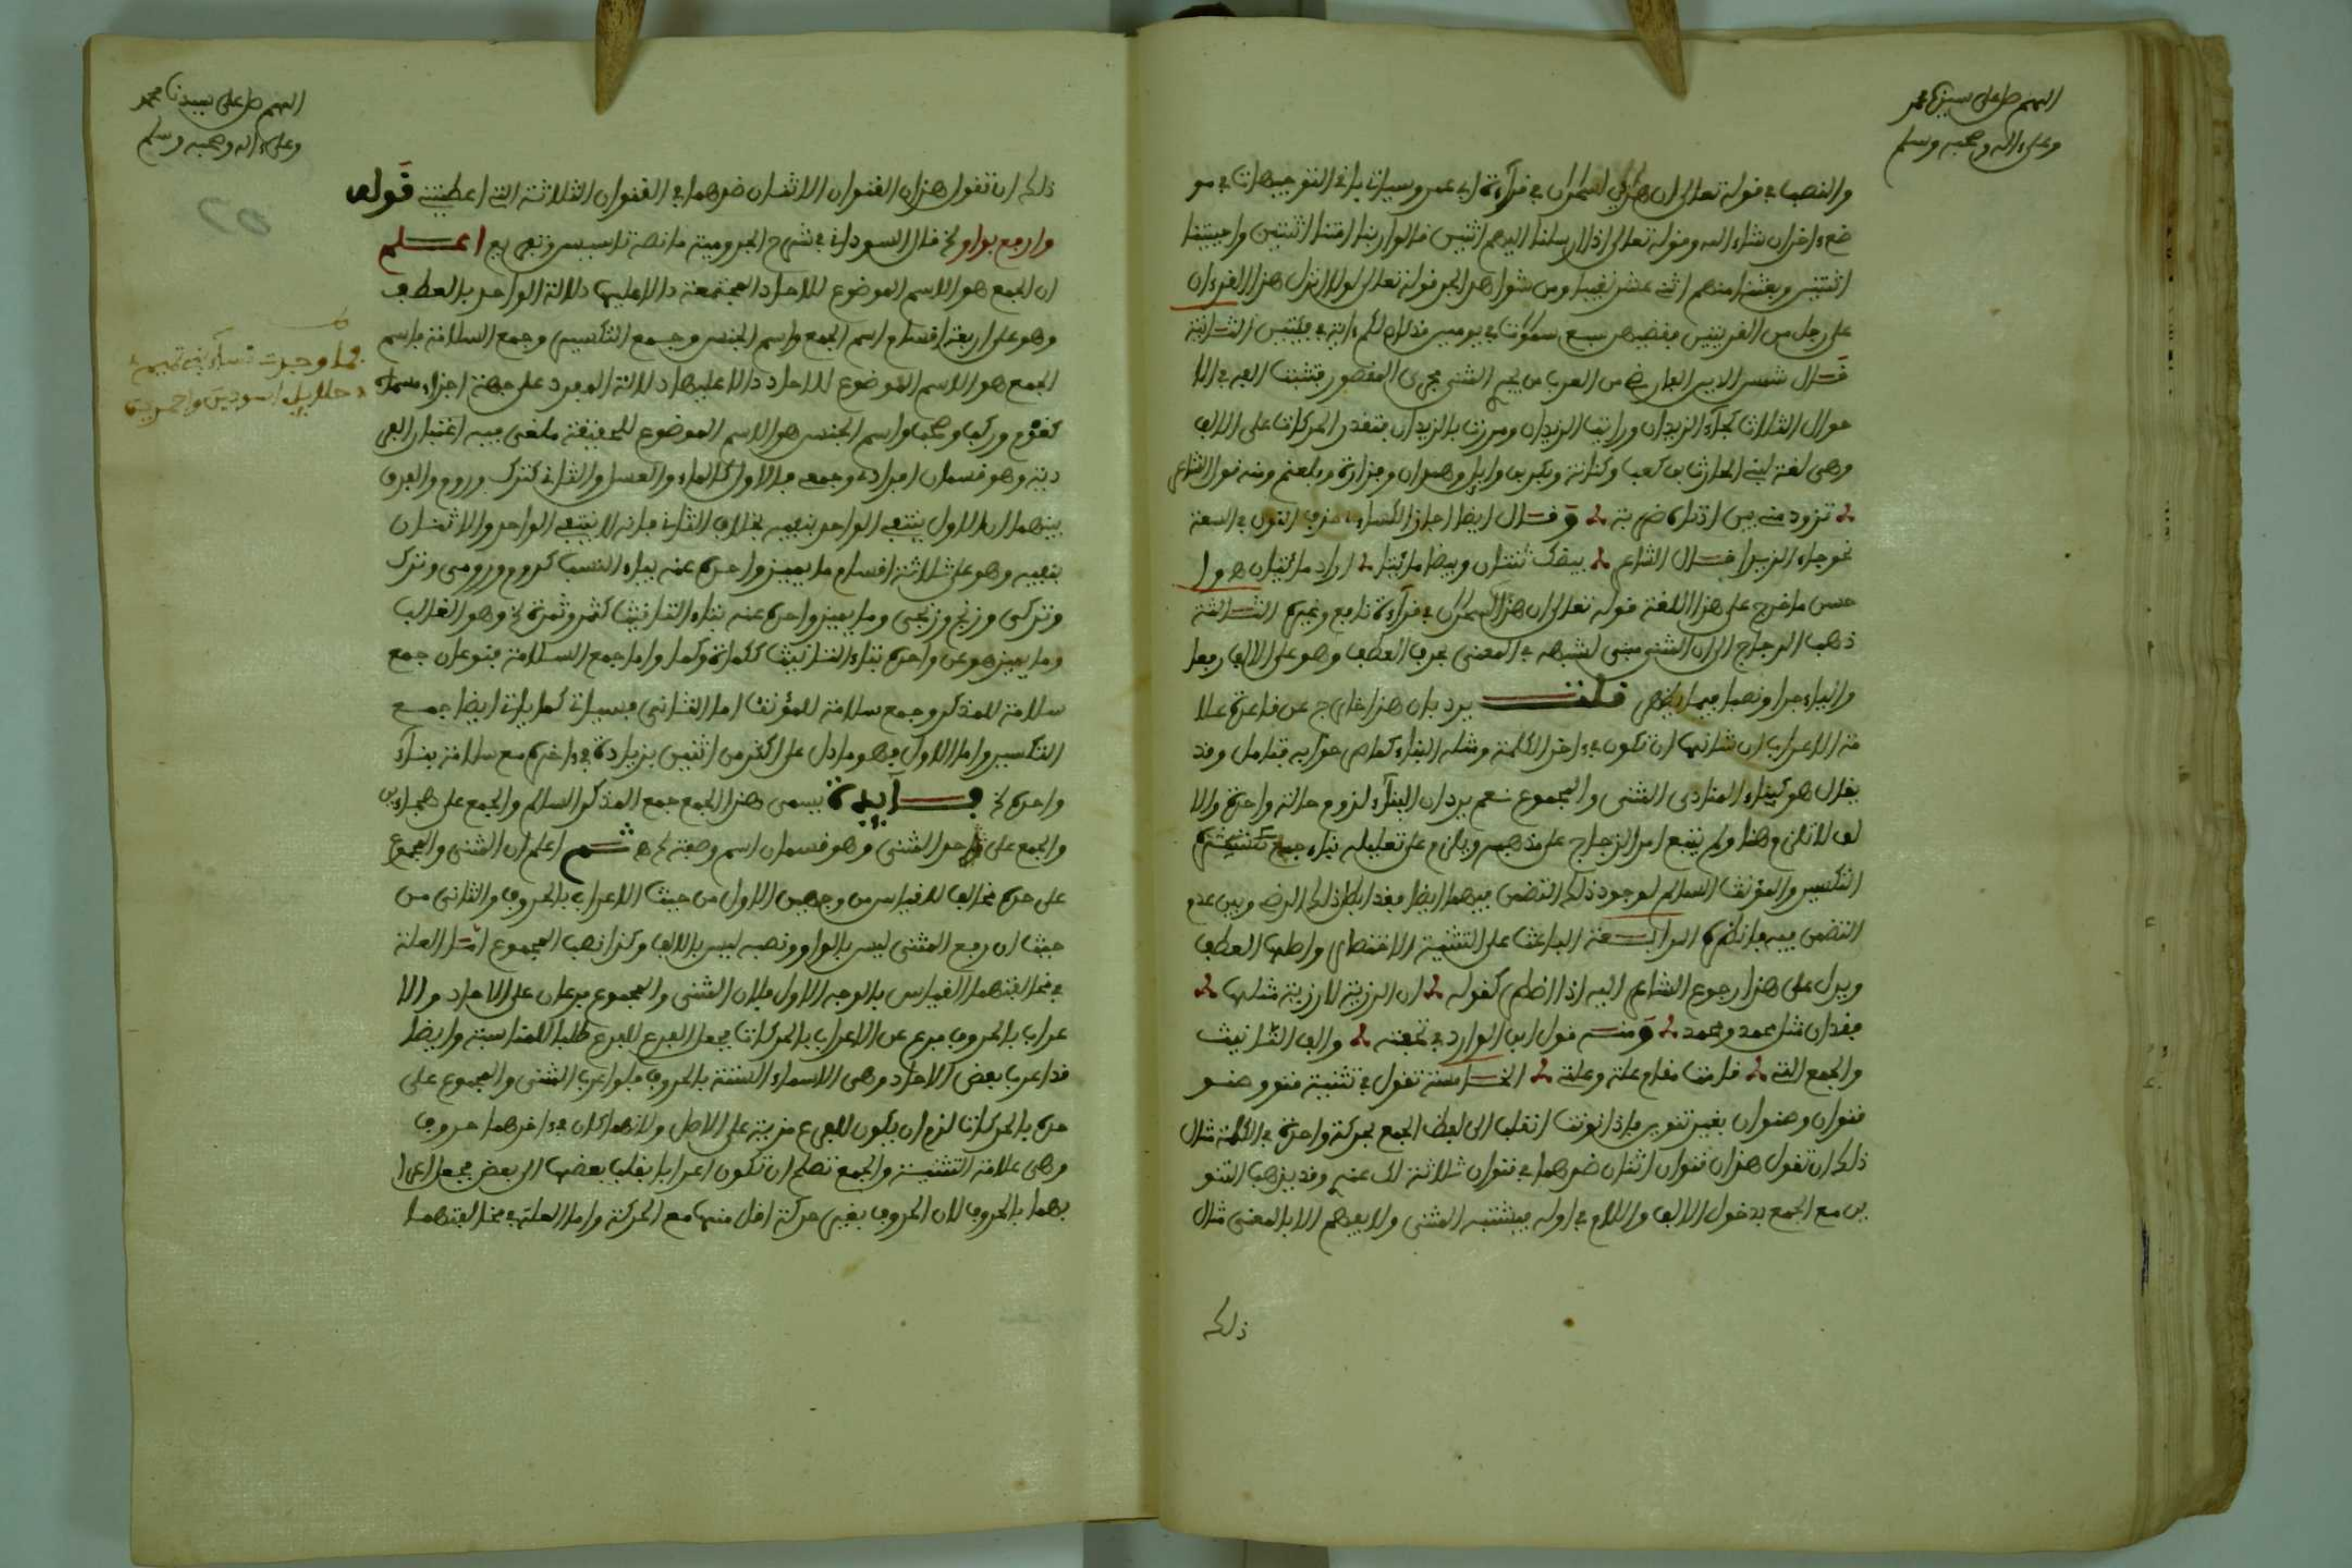 اللهم صل على سيدنا محمد
وعلى ءاله وصحبه وسلم
والنصب في قوله تعالى ان هذين لسحران في قراءة ابي عمرو وسياتي باقي التوجيهات في مو
ضع ءاخر ان شاء الله وقوله تعالى اذ ارسلنا اليهم اثنين قالوا ربنا امتنا اثنتين واحييتنا
اثنتين وبعثنا منهم اثني عشر نقيبا ومن شواهد الجر قوله تعالى لولا نزل هذا القرءان
على رجل من القريتين فقضيهن سبع سموت في يومين قد كان لكم ءاية في فئتين الثانية
قال شمس الدين الفارضي من العرب من يجري المثنى مجرى المقصور فتثبت الفه في الا
حوال الثلاث كجاء الزيدان ورايت الزيدان ومررت بالزيدان فتقدر الحركات على الالف
وهي لغة لبني الحارث بن كعب وكنانة وبكر بن وايل وهمدان وفزارة وبلعنبر ومنه قول الشاعر
تزود منا بين اذناه ضربة وقال ايضا اجاز الكساءي حذف النون في السعة
نحو جاء الزيدا قال الشاعر بيضك ثنتان وبيضي مائتا اراد مائتان هو ا
حسن ما خرج على هذا اللغة قوله تعالى ان هذان لسحران في قراءة نافع وغيره الثالثة
ذهب الزجاج الى ان المثنى مبني لشبهه في المعنى بحرف العطف وهو على الالف رفعا
والياء جرا ونصبا فيما يظهر قلت يرد بان هذا خارج عن قاعدة علا
مة الاعراب ان شانها ان تكون في ءاخر الكلمة ومثله البناء كما مر جوابه فتامل وقد
يقال هو كبناء المنادى المثنى والمجموع نعم يرد ان البناء لزوم حالة واحدة والا
لف لا تلزم وهنا ولم يتبع احد الزجاج على مذهبه ويلزم على تعليله بناء جمع
التكسير والمؤنث السالم لوجود ذلك التضمن فيهما ايضا فقد ابطل ذلك الرضي وبين عدم
التضمن فيه فانظره الرابعة الباعث على التثنية الاختصار واصلها العطف
ويدل على هذا رجوع الشاعر اليه اذا اضطر كقوله ان الرزية لا رزية مثلها
فقدان مثل محمد ومحمد ومنه قول ابن الوارد في تحفته والف التانيث
والجمع التي قامت مقام علة وعلة الخامسة تقول في تثنية قنو وصنو
قنوان وصنوان بغير تنوين فاذا نونت انقلب الى لفظ الجمع بحركة واحدة في الكلمة مثال
ذلك ان تقول هذان قنوان اثنان ضرهما في قنوان ثلاثة لك عنهم وقد يذهب التنو
ين مع الجمع بدخول الالف واللام في اوله فيشتبه المثنى ولا يفهم الا بالمعنى مثال
ذلك
اللهم صل على سيدنا محمد
وعلى ءاله وصحبه وسلم
ذلك ان تقول هذان القنوان الاثنان ضرهما في القنوان الثلاثة التي اعطيتني قوله
وارفع بواو الخ قال السوداني في شرح الجرومية ما نصه تاسيس وتفريع اعلم
ان الجمع هو الاسم الموضوع للاحاد المجتمعة دالا عليها دلالة الواحد بالعطف
وهو على اربعة اقسام اسم الجمع واسم الجنس وجمع التكسير وجمع السلامة فاسم
الجمع هو الاسم الموضوع للاحاد دالا عليها دلالة المفرد على جهة اجزاء مسماه
كقوم وركب وصحب واسم الجنس هو الاسم الموضوع للحقيقة ملغى فيه اعتبار الفر
دية وهو قسمان افرادي وجمعي فالاول كالماء والعسل والثاني كترك وروم والفرق
بينهما ان الاول ينتفي الواحد بنفيه بخلاف الثاني فانه لا ينتفي الواحد والاثنان
بنفيه وهو على ثلاثة اقسام ما يميز واحده عنه بياء النسب كروم ورومي وترك
وتركي وزنج وزنجي وما يميز واحده عنه بتاء التانيث كثمر وثمرة الخ وهو الغالب
وما يميز هو عن واحده بتاء التانيث ككماة وكما واما جمع السلامة فنوعان جمع
سلامة للمذكر وجمع سلامة للمؤنث اما الثاني فسياتي كما ياتي ايضا جمع
التكسير واما الاول فهو ما دل على اكثر من اثنين بزيادة في ءاخره مع سلامة بناء
واحده الخ فايدة يسمى هذا الجمع جمع المذكر السالم والجمع على هجاءين
والجمع على حد المثنى وهو قسمان اسم وصفة الخ ثم اعلم ان المثنى والمجموع
على حده مخالف للقياس من وجهين الاول من حيث الاعراب بالحروف والثاني من
حيث ان رفع المثنى ليس بالواو ونصبه ليس بالالف وكذا نصب المجموع اما العلة
في مخالفتهما القياس بالوجه الاول فلان المثنى والمجموع فرعان على الاحاد والا
عراب بالحروف فرع عن الاعراب بالحركات فجعل الفرع للفرع طلبا للمناسبة وايضا
قد اعرب بعض الاحاد وهي الاسماء الستة بالحروف فلو اعرب المثنى والمجموع على
حده بالحركات لزم ان يكون للفرع مزية على الاصل ولانهما كان في ءاخرهما حروف
وهي علامة التثنية والجمع تصلح ان تكون اعرابا بقلب بعضها الى بعض فجعل اعرا
بهما بالحروف لان الحروف بغير حركة اقل منها مع الحركة واما العلة في مخالفتهما
فما وجدت نساء بني تميم
حلايل اسودين واحمرين